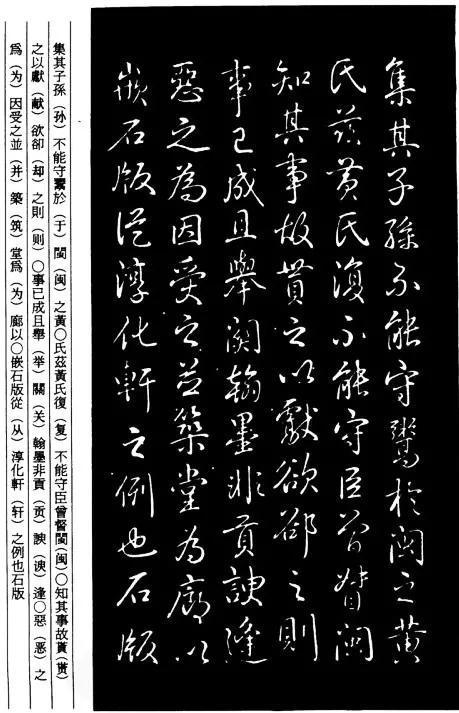 集其子孫不能守鬻於閩之黄
氏茲黄氏復不能守臣曾督閩
知其事故貰之以獻欲郤之則
事已成且舉關翰墨非貢諛逢
惡之為因受之並築堂為廊以
嵌石版從淳化軒之例也石版
集其子孫（孙）不能守鬻於（于）閩（闽）之黃○氏茲黃氏復（复）不能守臣曾督閩(闽)○知其事故貰（贳）
之以獻（献）欲卻（却）之則（则）○事已成且舉（举）關（关）翰墨非貢（贡）諛（谀）逢○惡（恶）之
爲（为）因受之並（并）築（筑）堂爲（为）廊以○嵌石版從（从）淳化軒（轩）之例也石版